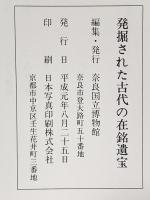 発掘された古代の在銘遺宝
編集・発行　奈良国立博物館
奈良市登大路町五十番地
発行日　平成元年八月二十五日
印刷　日本写真印刷株式会社
京都市中京区壬生花井町三番地